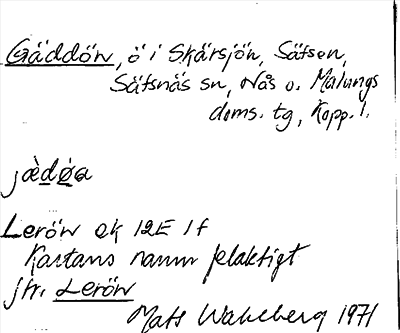 Gäddön, ö i Skärsjön, Sätsen,
Säfsnäs sn, Nås o. Malungs
doms. tg, Kopp. l.
jæ̀døa
Lerön ek 12E 1f
Kartans namn felaktigt
jfr. Lerön
Mats Wahlberg 1971